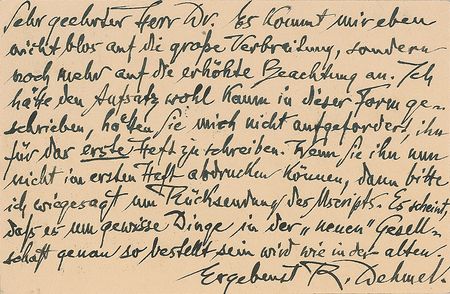 Sehr geehrter Herr Dr. Es kommt mir eben
nicht blos auf die große Verbreitung, sondern
noch mehr auf die erhöhte Beachtung an. Ich
hätte den Aufsatz wohl kaum in dieser Form ge-
schrieben, hätten Sie mich nicht aufgefordert, ihn
für das erste Heft zu schreiben. Wenn Sie ihn nun
nicht im ersten Heft abdrucken können, dann bitte
ich wiegesagt um Rücksendung des Mscripts. Es scheint,
daß es um gewisse Dinge in der „neuen" Gesell-
schaft genau so bestellt sein wird wie in der alten.
Ergebenst R. Dehmel.